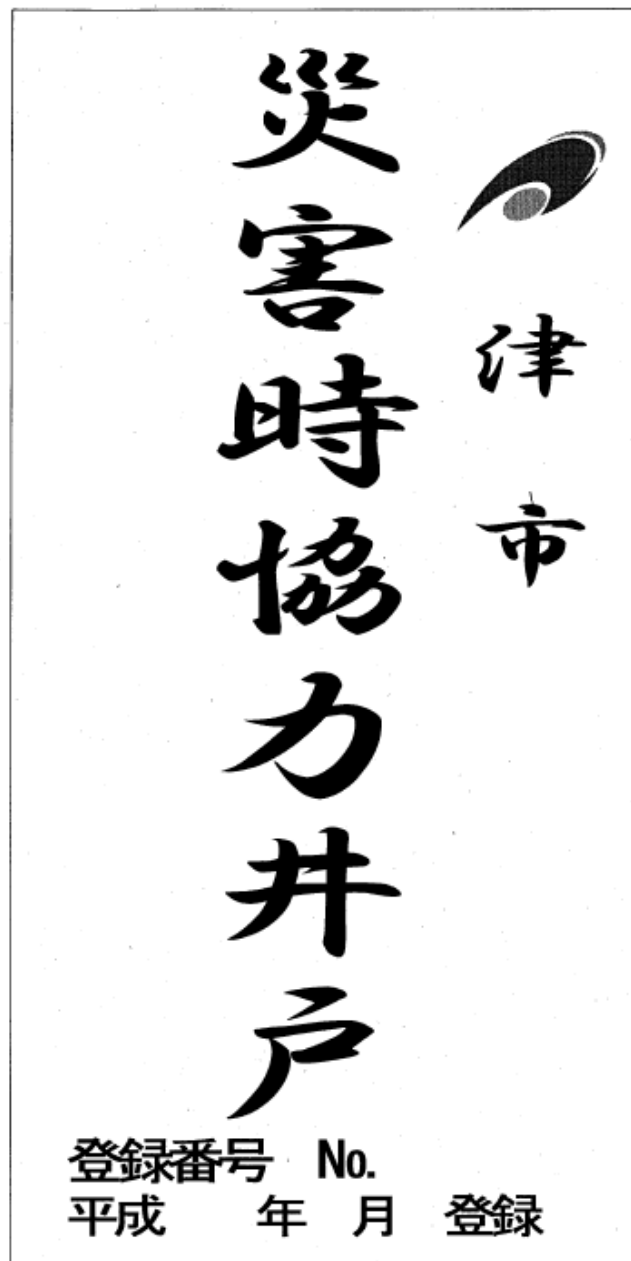 津市
災害時協力井戸
登録番号 No.
平成 年 月 登録